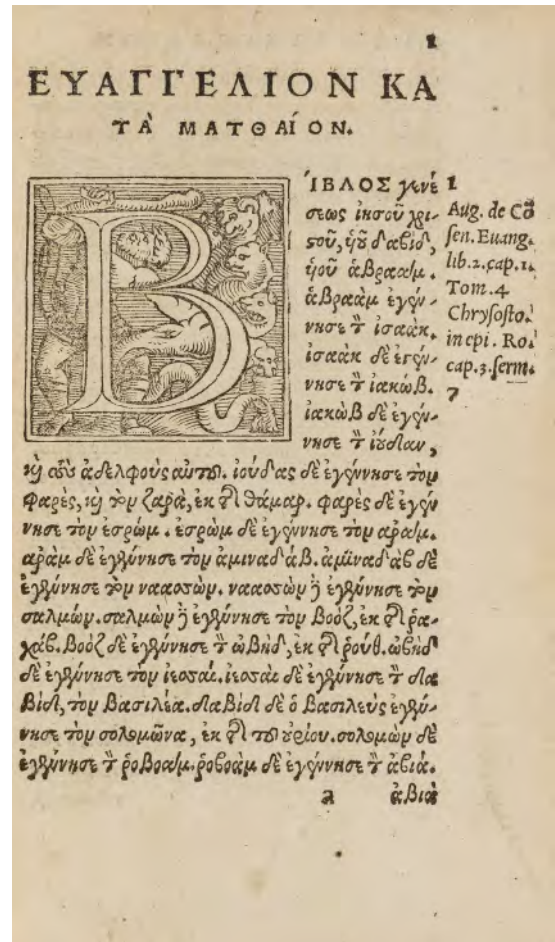 1
ΕΥΑΓΓΕΛΙΟΝ ΚΑ
ΤᾺ ΜΑΤΘΑΊΟΝ.
ΒΊΒΛΟΣ γενέ
σεως ἰησοῦ χρι-
στοῦ, ὑοῦ δαβὶδ,
ὑοῦ ἀβραάμ.
ἀβραὰμ ἐγέν-
νησε τ̀ ἰσαάκ.
ἰσαὰκ δὲ ἐγέν-
νησε τ̀ ἰακώβ.
ἰακὼβ δὲ ἐγέν-
νησε τ̀ ἰούδαν,
1
Aug. de Cō
sen. Euang.
lib.2.cap.1.
Tom.4
Chrysosto.
in epi. Ro.
cap.3.serm.
7
καὶ τοὺς ἀδελφοὺς αὐτοῦ. ἰούδας δὲ ἐγέννησε τὸν
φαρὲς, καὶ τὸν ζαρὰ, ἐκ τῆς θάμαρ. φαρὲς δὲ ἐγέν
νησε τὸν ἐσρώμ. ἐσρὼμ δὲ ἐγέννησε τὸν αράμ.
αρὰμ δὲ ἐγέννησε τὸν ἀμιναδάβ. ἀμιναδὰβ δὲ
ἐγέννησε τὸν ναασσών. ναασσὼν δὲ ἐγέννησε τὸν
σαλμών. σαλμὼν δὲ ἐγέννησε τὸν βοὸζ, ἐκ τῆς ρα-
χάβ. βοὸζ δὲ ἐγέννησε τ̀ ὠβὴδ, ἐκ τῆς ῥούθ. ὠβὴδ
δὲ ἐγέννησε τὸν ἰεσσαί. ἰεσσαὶ δὲ ἐγέννησε τ̀ δα
βὶδ, τὸν βασιλέα. δαβὶδ δὲ ὁ βασιλεὺς ἐγέν-
νησε τὸν σολομῶνα, ἐκ τῆς τοῦ οὐρίου. σολομὼν δὲ
ἐγέννησε τ̀ ῥοβοάμ. ῥοβοὰμ δὲ ἐγέννησε τ̀ ἀβιά.
a ἀβιὰ